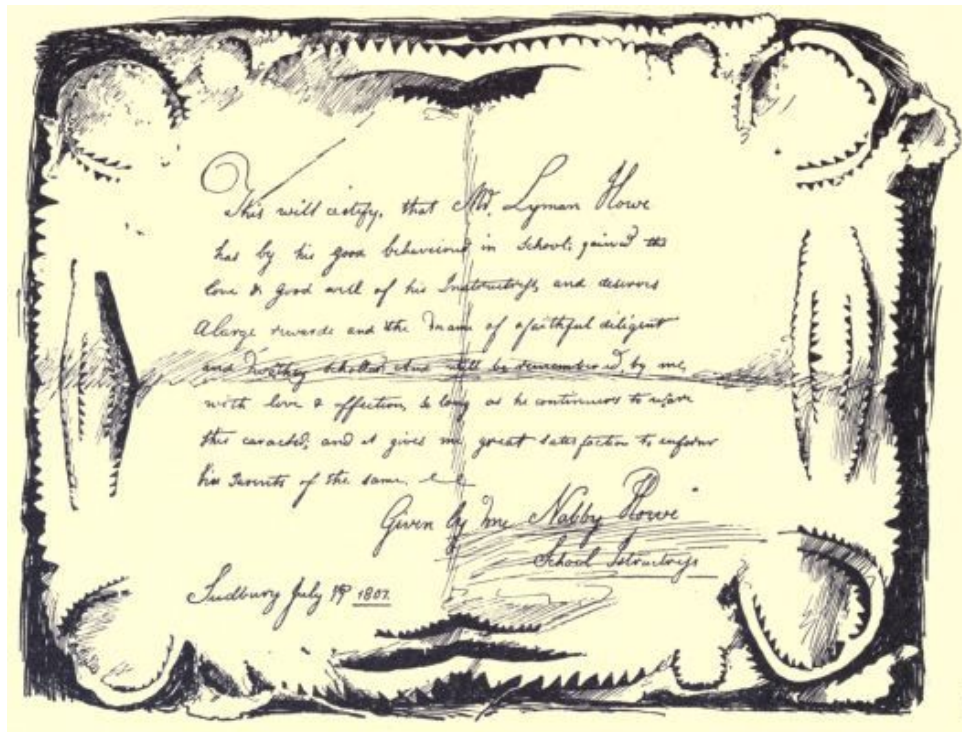 This will certify, that Mr. Lyman Howe
has by his good behaviour in School; gained the
love & good will of his Instructress, and deserves
A large rewarde and the name of a faithful diligent
and worthey scholler And will be remembered, by me,
with love & affection, so long as he continues to
this caracter, and it gives me great satesfaction to enform
his Parents of the same.
Given by me Nabby Howe
School Istructress
Sudbury July 1807.